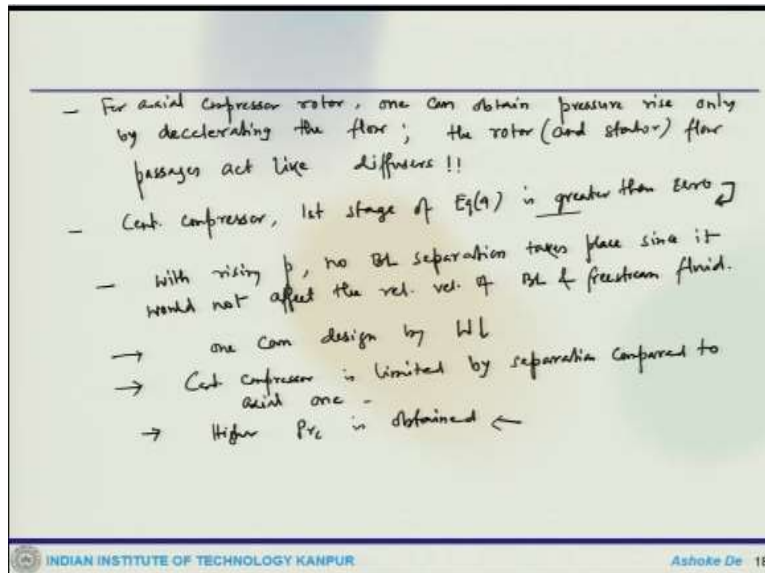 - For axial compressor rotor, one can obtain pressure rise only
by decelerating the flow; the rotor (and stator) flow
passages act like diffusers!!
- Cent. compressor, 1st stage of Eq(9) is greater than zero
- with rising p, no BL separation takes place since it
would not affect the rel. vel. of BL & freestream fluid.
→ one can design by
→ Cent compressor is limited by separation compared to
axial one -
→ Higher Prc is obtained ←
INDIAN INSTITUTE OF TECHNOLOGY KANPUR
Ashoke De 18